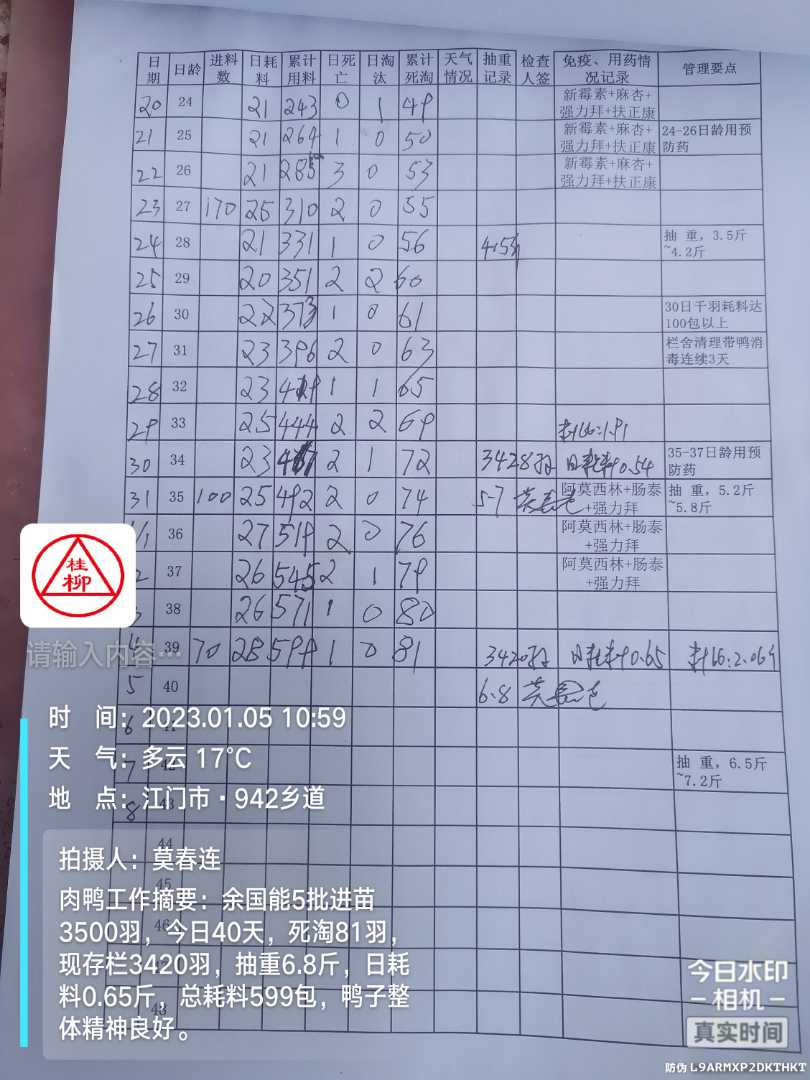 日期 日龄 进料数 日耗料 累计用料 日死亡 日淘汰 累计死淘 天气情况 抽重记录 检查人签 免疫、用药情况记录 管理要点
20 24 21 243 0 1 49 新霉素+麻杏+强力拜+扶正康
21 25 21 264 1 0 50 新霉素+麻杏+强力拜+扶正康 24-26日龄用预防药
22 26 21 285 3 0 53 新霉素+麻杏+强力拜+扶正康
23 27 170 25 310 2 0 55
24 28 21 331 1 0 56 4.5斤 抽 重，3.5斤~4.2斤
25 29 20 351 2 2 60
26 30 22 373 1 0 61 30日千羽耗料达100包以上
27 31 23 396 2 0 63 栏舍清理带鸭消毒连续3天
28 32 23 419 1 1 65
29 33 25 444 2 2 69 料比:1.91
30 34 23 467 2 1 72 3428羽 日耗料0.54 35-37日龄用预防药
31 35 100 25 492 2 0 74 5.7 莫春连 阿莫西林+肠泰+强力拜 抽 重，5.2斤~5.8斤
1/1 36 27 519 2 0 76 阿莫西林+肠泰+强力拜
2 37 26 545 2 1 79 阿莫西林+肠泰+强力拜
3 38 26 571 1 0 80
4 39 70 28 599 1 0 81 3420羽 日耗料0.65 料比:2.06
5 40 6.8 莫春连
6
7 抽 重，6.5斤~7.2斤
8 43
44
45
46
48
桂柳
请输入内容…
时 间：2023.01.05 10:59
天 气：多云 17℃
地 点：江门市·942乡道
拍摄人：莫春连
肉鸭工作摘要：余国能5批进苗
3500羽，今日40天，死淘81羽，
现存栏3420羽，抽重6.8斤，日耗
料0.65斤，总耗料599包，鸭子整
体精神良好。
今日水印
相机
真实时间
防伪 L9ARMXP2DKTHKT